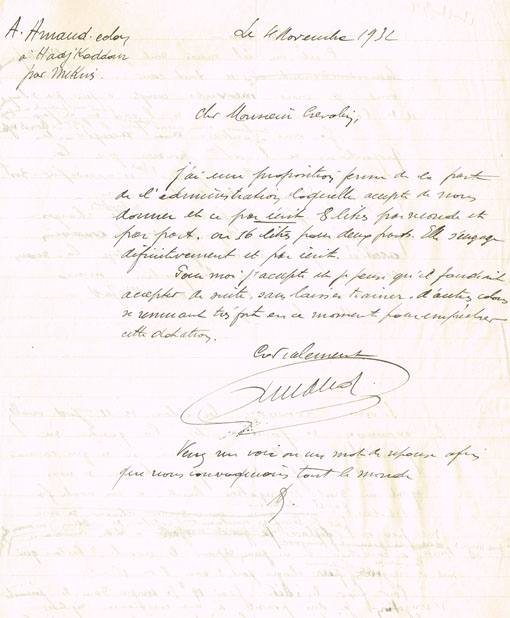 A. Arnaud. colon
à Hadj Keddour
par Meknès
Le 4 Novembre 1932
Cher Monsieur
j'ai une proposition ferme de la part
de l'administration, laquelle accepte de nous
donner et ce par écrit 8 litres par seconde et
par part. ou 16 litres pour deux parts. Elle s'engage
définitivement et par écrit.
Pour moi j'accepte et je pense qu'il faudrait
accepter de suite, sans laisser trainer, d'autres colons
se remuant très fort en ce moment pour empêcher
cette dotation.
Cordialement
Arnaud.
Venez me voir ou un mot de réponse afin
que nous convoquions tout le monde